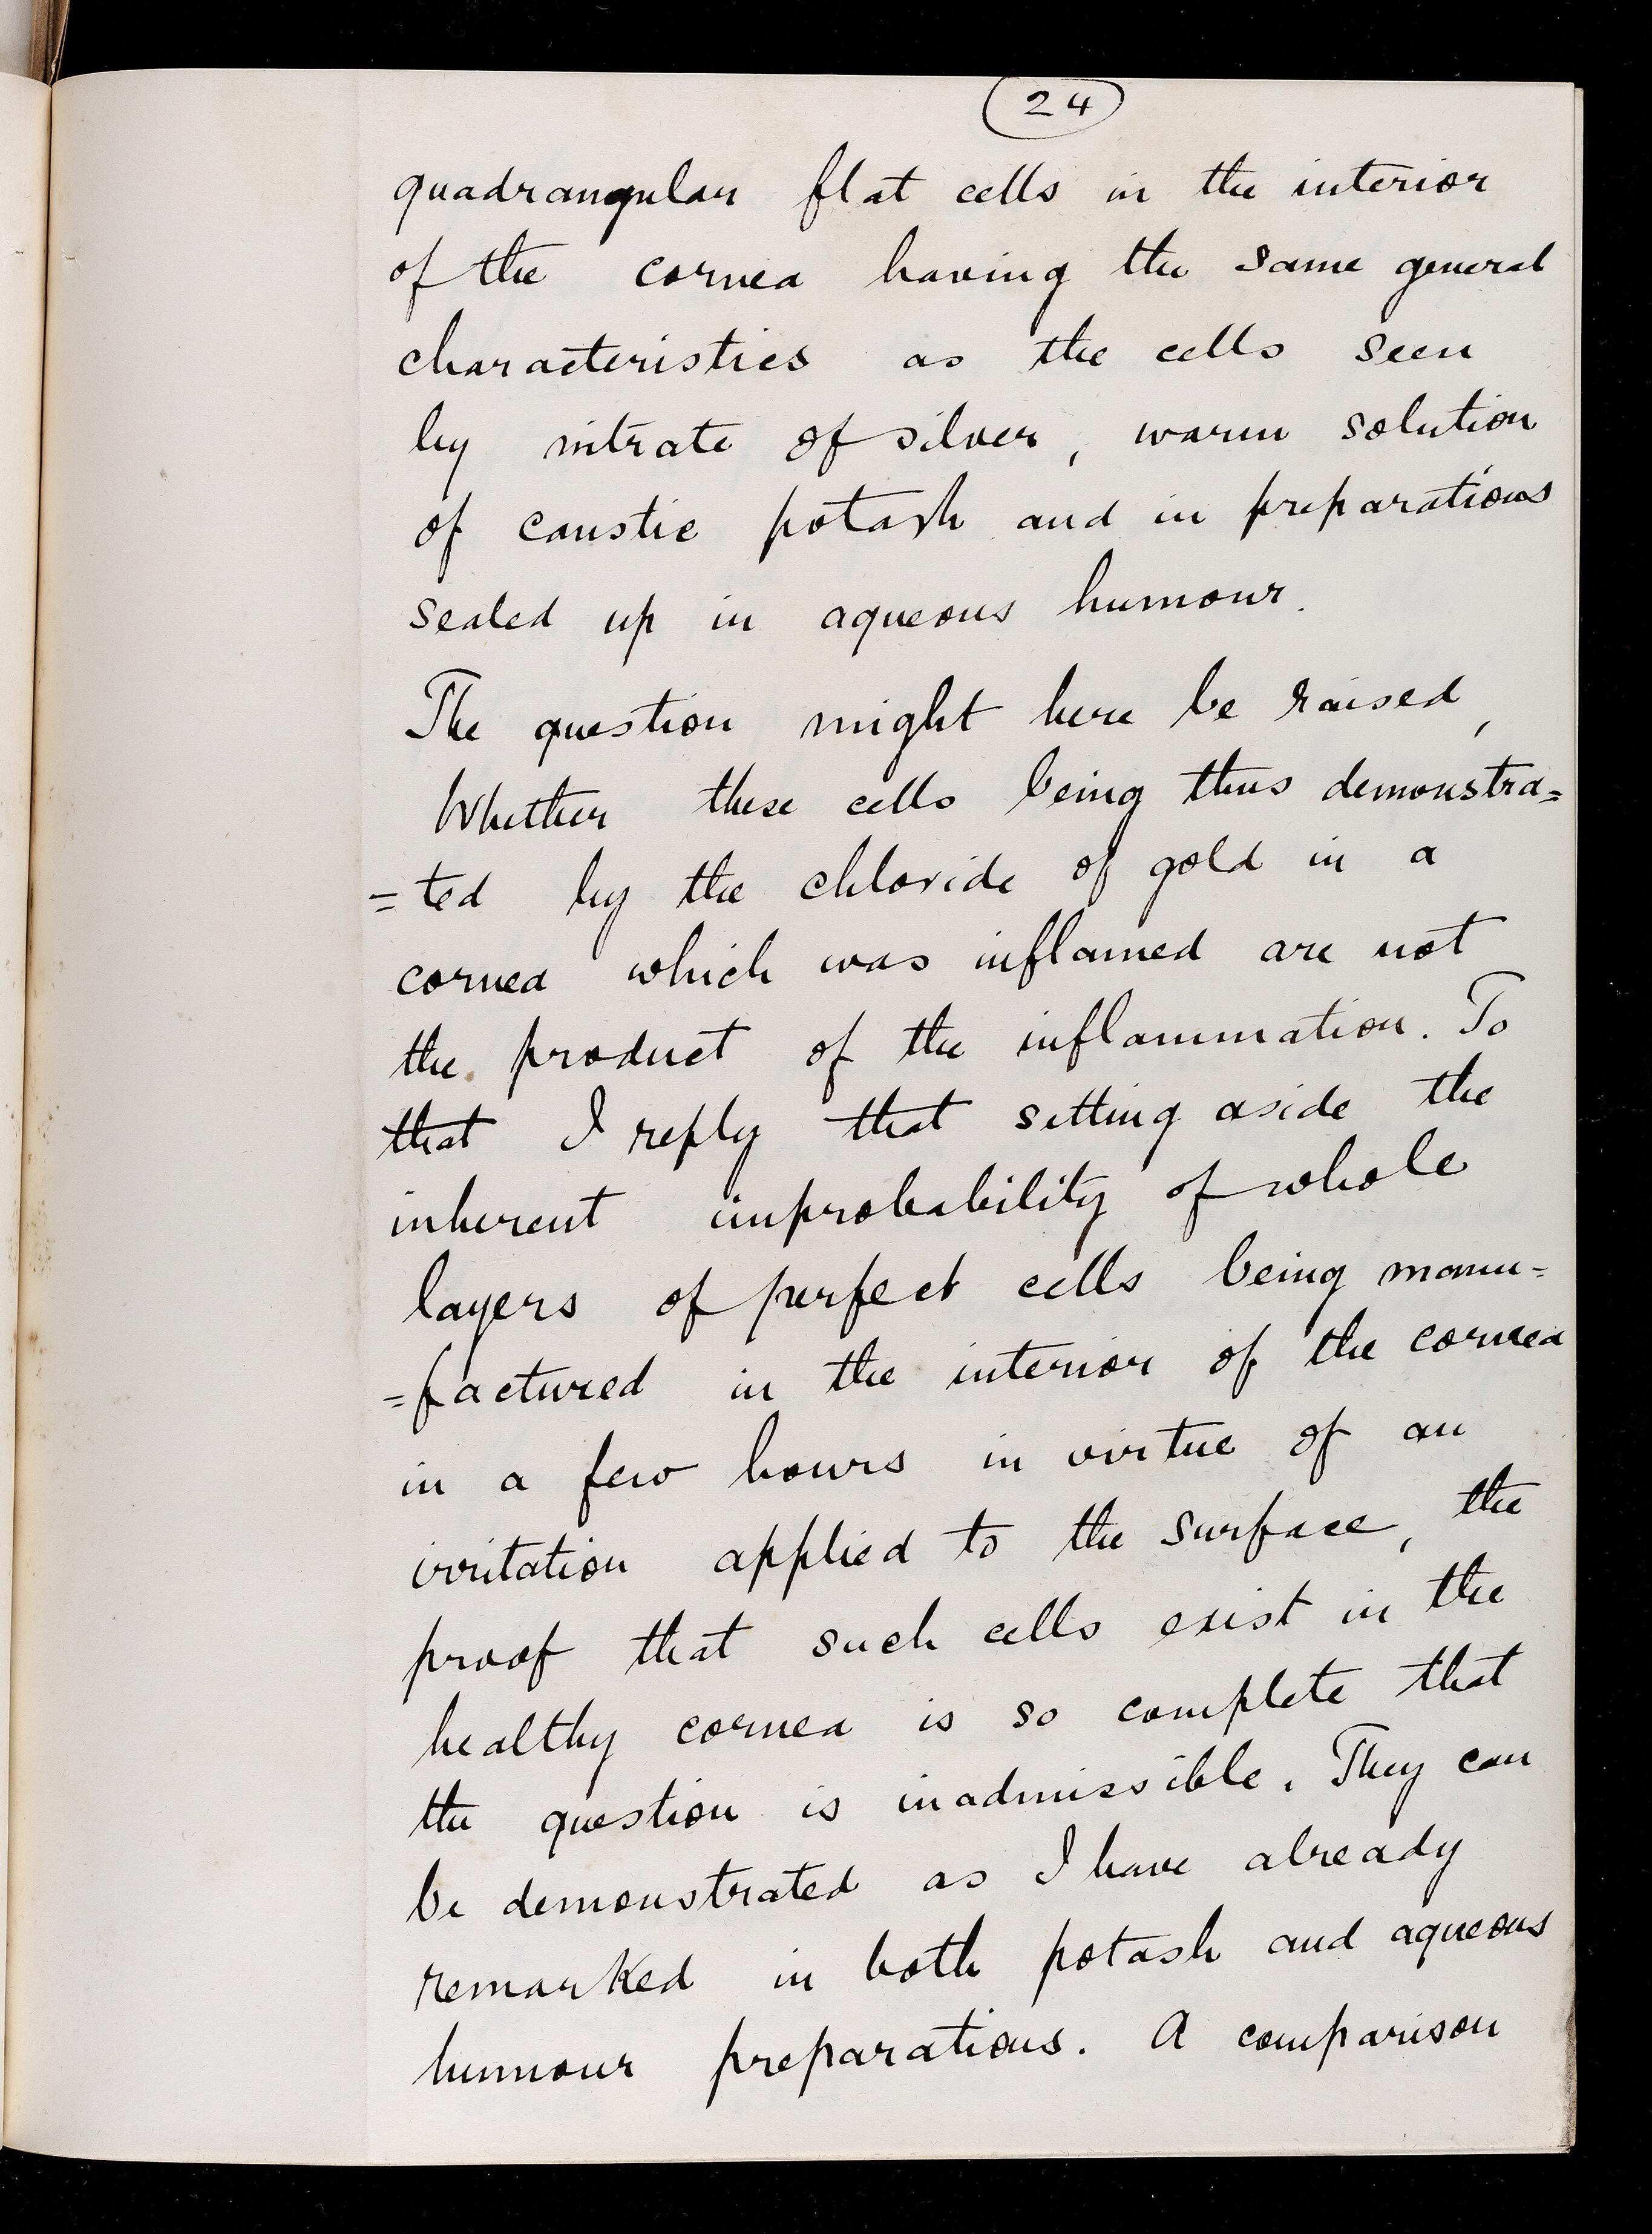 24
quadrangular flat cells in the interior
of the cornea having the same general
characteristics as the cells seen
by nitrate of silver, warm solution
of caustic potash and in preparations
sealed up in aqueous humour.
The question might here be raised,
Whether these cells being thus demonstra=
=ted by the chloride of gold in a
cornea which was inflamed are not
the product of the inflammation. To
that I reply that setting aside the
inherent improbability of whole
layers of perfect cells being manu=
=factured in the interior of the cornea
in a few hours in virtue of an
irritation applied to the surface, the
proof that such cells exist in the
healthy cornea is so complete that
the question is inadmissible. They can
be demonstrated as I have already
remarked in both potash and aqueous
humour preparations. A comparison